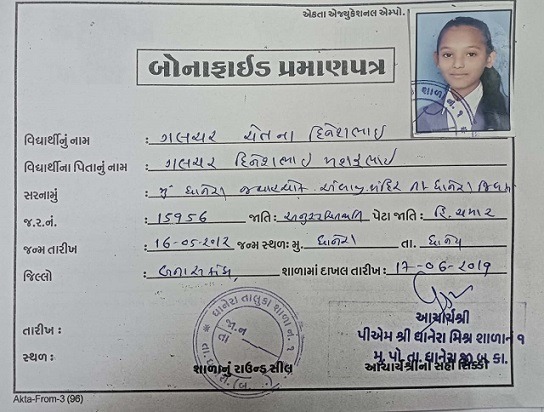 એકતા એજ્યુકેશનલ એમ્પો.
બોનાફાઈડ પ્રમાણપત્ર
વિદ્યાર્થીનું નામ : ગલચર ચેતના દિનેશભાઈ
વિદ્યાર્થીના પિતાનું નામ : ગલચર દિનેશભાઈ
સરનામું : મુ ધાનેરા મંદિર તા ધાનેરા
જ.ર.નં. : 15956 જાતિ : અનુસૂચિતજાતિ પેટા જાતિ : હિ.ચમાર
જન્મ તારીખ : 16-05-2012 જન્મ સ્થળ: મુ. ધાનેરા તા. ધાનેરા
જિલ્લો : બનાસકાંઠા, શાળામાં દાખલ તારીખ : 17-06-2019
તારીખ :
સ્થળ :
ધાનેરા તાલુકા શાળા નં. ૧
શાળાનું રાઉન્ડ સીલ
આચાર્યશ્રી
પીએમ શ્રી ધાનેરા મિશ્ર શાળાનં ૧
મુ.પો.તા.ધાનેરા જી.બ.કા.
આચાર્યશ્રીના સહી સિક્કા
Akta-From-3 (96)